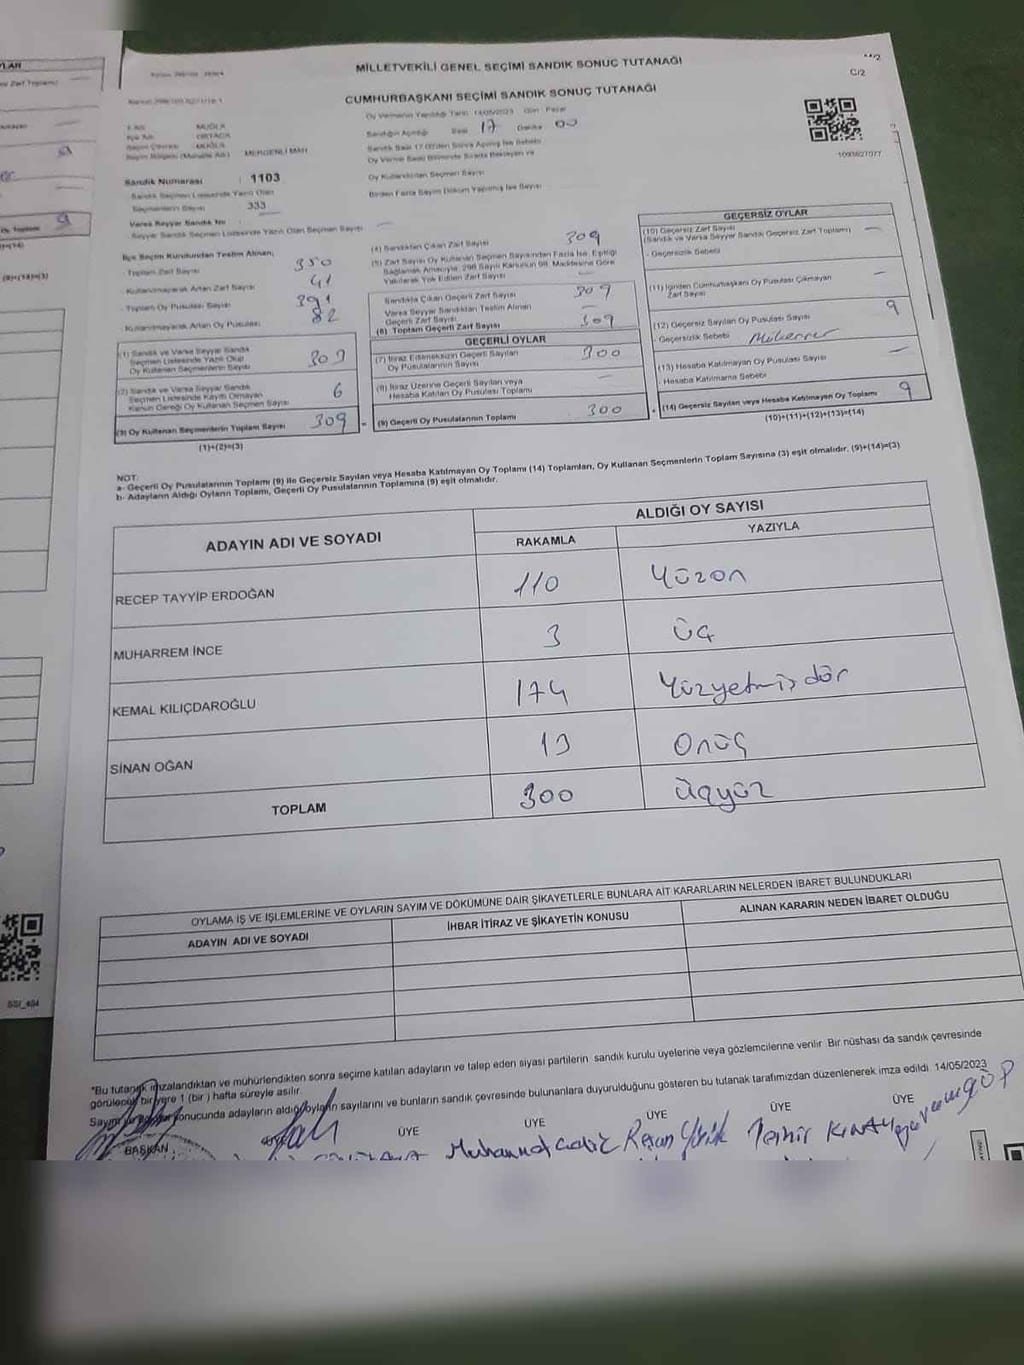 MİLLETVEKİLİ GENEL SEÇİMİ SANDIK SONUÇ TUTANAĞI
C/2
CUMHURBAŞKANI SEÇİMİ SANDIK SONUÇ TUTANAĞI
Oy Vermenin Yapıldığı Tarih 14/05/2023 Gün: Pazar
Sandığın Açıldığı Saat 17 Dakika 00
MUĞLA
ORTACA
MUĞLA
MERGENLİ MAH
Sandık Saat 17.00'den Sonra Açılmış İse Sebebi
Oy Kullandırılan Seçmen Sayısı
Birden Fazla Sayım Döküm Yapılmış İse Sayısı
1090827077
Sandık Numarası : 1103
Sandık Seçmen Listesinde Yazılı Olan
Seçmenlerin Sayısı 333
Varsa Seyyar Sandık No
Seyyar Sandık Seçmen Listesinde Yazılı Olan Seçmen Sayısı
İlçe Seçim Kurulundan Teslim Alınan;
Toplam Zarf Sayısı 350
Kullanılmayarak Artan Zarf Sayısı 41
Toplam Oy Pusulası Sayısı 391
Kullanılmayarak Artan Oy Pusulası 82
(1) Sandık ve Varsa Seyyar Sandık
Seçmen Listesinde Yazılı Olup
Oy Kullanan Seçmenlerin Sayısı 303
(2) Sandık ve Varsa Seyyar Sandık
Seçmen Listesinde Kaydı Olmayan
Kanun Gereği Oy Kullanan Seçmen Sayısı 6
(3) Oy Kullanan Seçmenlerin Toplam Sayısı 309
(1)+(2)=(3)
(4) Sandıktan Çıkan Zarf Sayısı 309
(5) Zarf Sayısı Oy Kullanan Seçmen Sayısından Fazla İse, Eşitliği
Sağlamak Amacıyla, 298 Sayılı Kanunun 98. Maddesine Göre
Yakılarak Yok Edilen Zarf Sayısı
Sandıkta Çıkan Geçerli Zarf Sayısı 309
Varsa Seyyar Sandıktan Teslim Alınan
Geçerli Zarf Sayısı
(6) Toplam Geçerli Zarf Sayısı 309
GEÇERLİ OYLAR
(7) İtiraz Edilmeksizin Geçerli Sayılan
Oy Pusulalarının Sayısı 300
(8) İtiraz Üzerine Geçerli Sayılan veya
Hesaba Katılan Oy Pusulası Toplamı
(9) Geçerli Oy Pusulalarının Toplamı 300
GEÇERSİZ OYLAR
(10) Geçersiz Zarf Sayısı
(Sandık ve Varsa Seyyar Sandık Geçersiz Zarf Toplamı)
- Geçersizlik Sebebi
(11) İçinden Cumhurbaşkanı Oy Pusulası Çıkmayan
Zarf Sayısı
(12) Geçersiz Sayılan Oy Pusulası Sayısı 9
- Geçersizlik Sebebi
(13) Hesaba Katılmayan Oy Pusulası Sayısı
- Hesaba Katılmama Sebebi
(14) Geçersiz Sayılan veya Hesaba Katılmayan Oy Toplamı 9
(10)+(11)+(12)+(13)=(14)
NOT:
a- Geçerli Oy Pusulalarının Toplamı (9) ile Geçersiz Sayılan veya Hesaba Katılmayan Oy Toplamı (14) Toplamları, Oy Kullanan Seçmenlerin Toplam Sayısına (3) eşit olmalıdır. (9)+(14)=(3)
b- Adayların Aldığı Oyların Toplamı, Geçerli Oy Pusulalarının Toplamına (9) eşit olmalıdır.
ADAYIN ADI VE SOYADI
ALDIĞI OY SAYISI
RAKAMLA YAZIYLA
RECEP TAYYİP ERDOĞAN 110 Yüzon
MUHARREM İNCE 3 üç
KEMAL KILIÇDAROĞLU 174 Yüzyetmişdör
SİNAN OĞAN 13 Onüç
TOPLAM 300 üçyüz
OYLAMA İŞ VE İŞLEMLERİNE VE OYLARIN SAYIM VE DÖKÜMÜNE DAİR ŞİKAYETLERLE BUNLARA AİT KARARLARIN NELERDEN İBARET BULUNDUKLARI
ADAYIN ADI VE SOYADI İHBAR İTİRAZ VE ŞİKAYETİN KONUSU ALINAN KARARIN NEDEN İBARET OLDUĞU
SSI_404
"Bu tutanak imzalandıktan ve mühürlendikten sonra seçime katılan adayların ve talep eden siyasi partilerin sandık kurulu üyelerine veya gözlemcilerine verilir. Bir nüshası da sandık çevresinde
görülecek bir yere 1 (bir) hafta süreyle asılır.
sonucunda adayların aldığı oyların sayılarını ve bunların sandık çevresinde bulunanlara duyurulduğunu gösteren bu tutanak tarafımızdan düzenlenerek imza edildi. 14/05/2023
BAŞKAN ÜYE ÜYE ÜYE ÜYE ÜYE